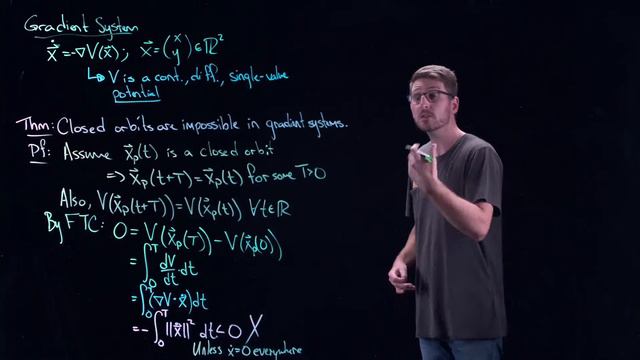 Gradient System
ẋ⃗ = -∇V(x⃗); x⃗ = (x y) ∈ ℝ²
↳ V is a cont., diff., single-value
potential
Thm: Closed orbits are impossible in gradient systems.
Pf: Assume x⃗ₚ(t) is a closed orbit
⇒ x⃗ₚ(t+T) = x⃗ₚ(t) for some T>0
Also, V(x⃗ₚ(t+T)) = V(x⃗ₚ(t)) ∀t∈ℝ
By FTC: 0 = V(x⃗ₚ(T)) - V(x⃗ₚ(0))
= ∫₀ᵀ dV/dt dt
= ∫₀ᵀ (∇V·ẋ⃗) dt
= -∫₀ᵀ ||ẋ⃗||² dt < 0 X
Unless ẋ=0 everywhere